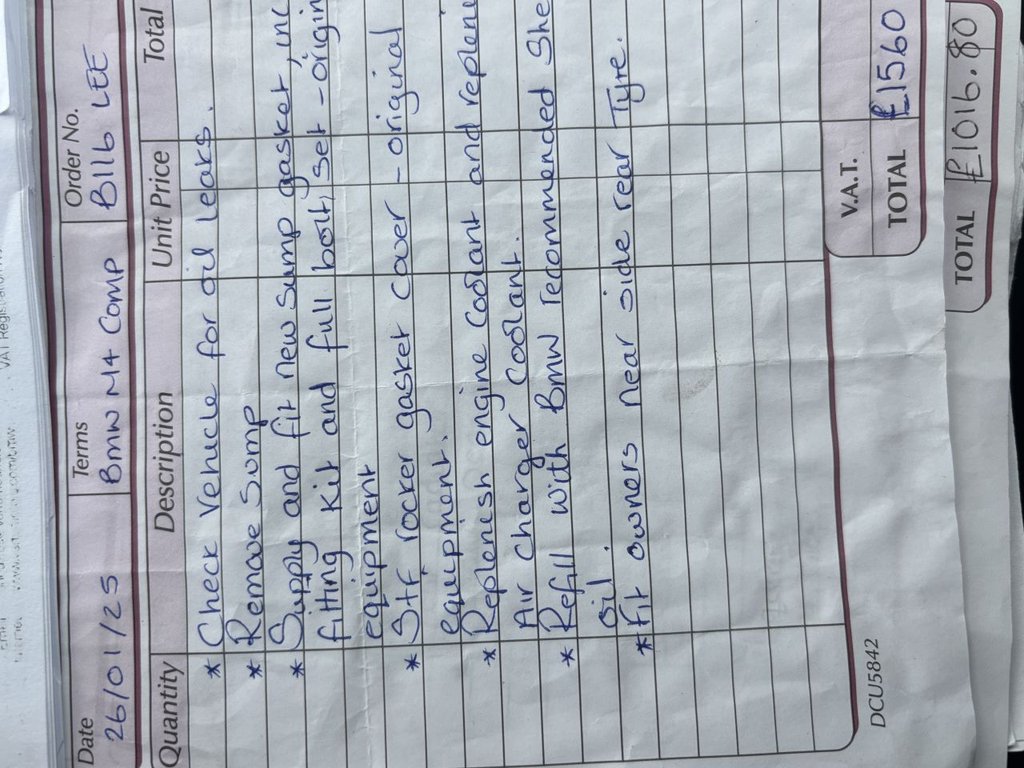 Date
26/01/25
Terms
BMW M4 COMP
Order No.
B116 LEE
Quantity
Description
Unit Price
Total
* Check Vehicle for oil leaks.
* Remove Sump
* Supply and fit new sump gasket, inc
fitting kit and full bolt set - origin
equipment
* S+F rocker gasket cover - original
equipment.
* Replenish engine coolant and replenis
Air charger coolant.
* Refill with BMW recommended She
oil.
* Fit owners near side rear Tyre.
V.A.T.
TOTAL
£1560
DCU5842
TOTAL
£1016.80